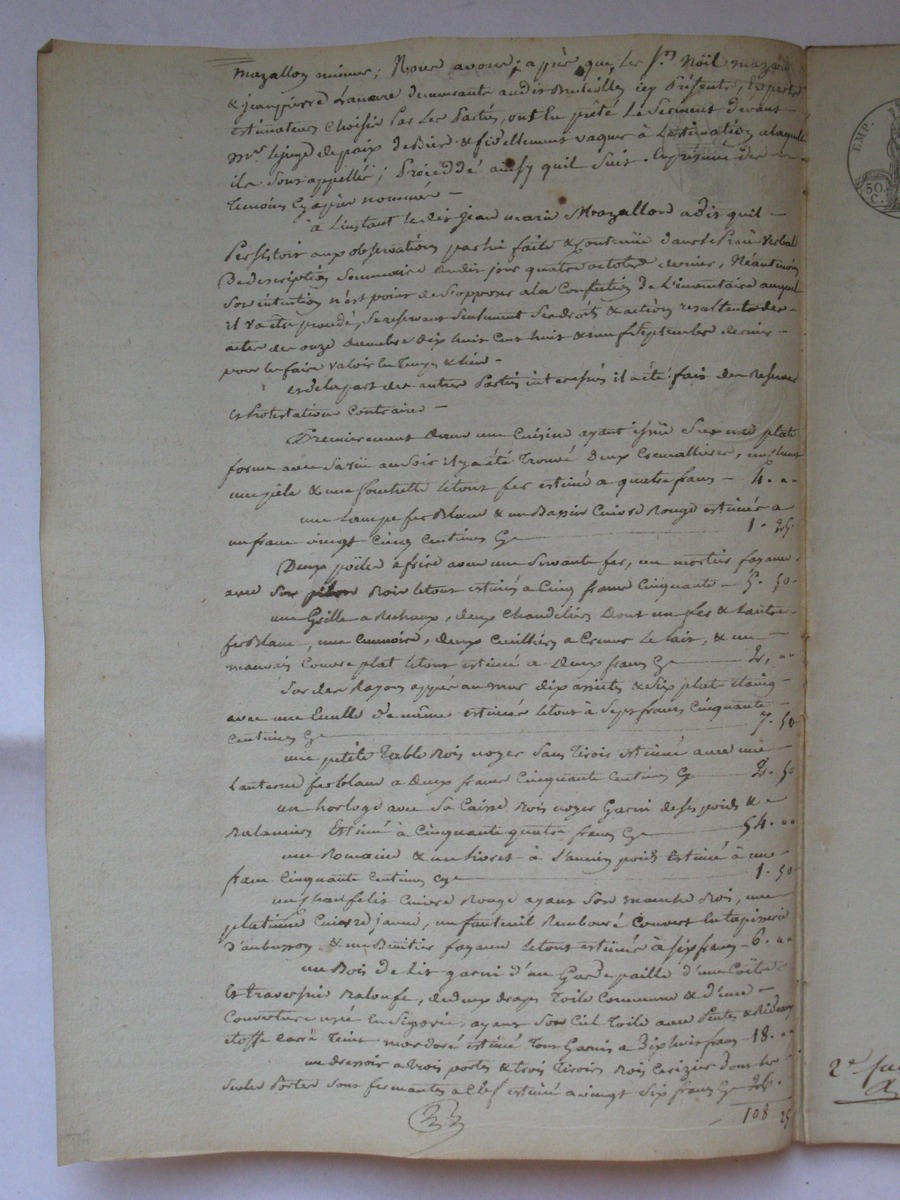 Mazallon mineur; Nous avons, apprès que les Srs. Noël mazon
& jeanpierre Lanave demeurants audit ici Présents, Experts
estimateurs Choisis Par les Parties, ont eu prêté Le Serment devant
Mr. le juge de paix de Bien & fidellement vaquer à Lestimation alaquelle
ils Sont appellés; Procédé ainsy quil Suit. En présence des
temoins Cy après nommés —
à Linstant ledit Jean marie Mazallon adit quil —
Persistoit aux observations par lui faite & Contenüe dans le Procès Verbal
De description Sommaire dudit jour quatre octobre dernier, Néantmoins
Son intention n'est point de S'opposer ala Confection de L'inventaire auquel
il va etre procedé, Se reservant Seulement Ses droits & action resultants des
actes des onze Decembre Dix huit Cent huit & neuf Septembre dernier
pour les faire valoir en Temps & lieu —
et dela part des autres Parties interessées il a été fait des Reserves
et Protestations Contraires —
Premierement Dans une Cuisine ayant issüe Sur une plat
forme avec Sa vüe au Soir il y a été Trouvé Deux Cremallieres,
une pèle & une fourchette letout fer estimé a quatre francs — 4. "
une Lampe fer Blanc & un Bassin Cuivre Rouge estimés a
un franc vingt Cinq Centimes Cy — 1. 25.
Deux pöeles à frire avec une Servante fer, un mortier fayance
avec Son pilon Bois letout estimés a Cinq francs Cinquante — 5. 50
une Grille a Rechaux, deux Chandeliers Dont un fer & Lautre
fer Blanc, une , deux Cuilliers a Cremer Le lait, & un
mauvais Couvre plat letout estimé a Deux francs Cy — 2. "
Sur des Rayons appuyé au mur dix assietes & Six plat etaing
avec une Ecuelle de même estimés letout à Sept francs Cinquante
Centimes Cy — 7. 50
une petite Table Bois noyer Sans Tiroir estimée avec une
Lanterne fer blanc a Deux francs Cinquante Centimes Cy — 2. 50
un horloge avec Sa Caisse Bois noyer Garni de Ses poids &
Balanciers Estimé à Cinquante quatre francs Cy — 54. "
une Romaine & un livret à L'ancien poids Estimé à un
franc Cinquante Centimes Cy — 1. 50
un Cuivre Rouge ayant Son manche Bois, une
platine Cuivre jaune, un fauteuil Rembouré Couvert en tapisserie
d'aubusson & un Benitier fayance letout estimés à Six francs — 6. "
un Bois de Lit garni d'un Garde paille d'une Coëtre
et traversin Baloufe, de deux draps Toile Commune & d'une —
Couverture usée en , ayant Son Ciel Toile avec Pentes & Rideaux
etoffe mordoré estimé Tous Garnis a Dix huit francs 18. "
un dressoir a trois portes & trois Tiroirs Bois Cerizier dont les
Portes Sont fermantes a Clef estimé a vingt Six francs Cy 26.
108 25
EMP.
50
C.
2e